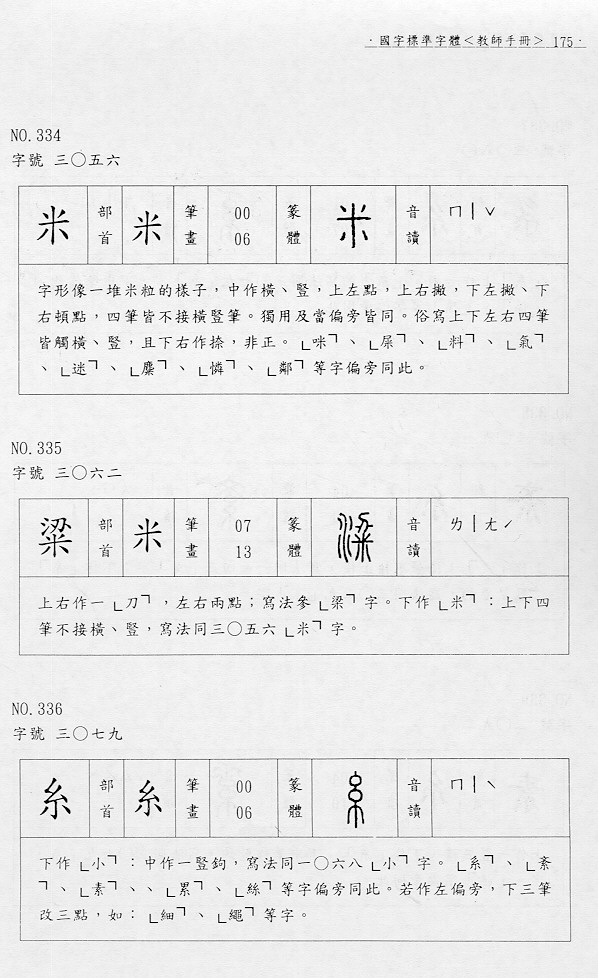 ·國字標準字體＜教師手冊＞ 175·
NO.334
字號 三〇五六
米 部首 米 筆畫 00 06 篆體 米 音讀 ㄇㄧˇ
字形像一堆米粒的樣子，中作橫、豎，上左點，上右撇，下左撇、下
右頓點，四筆皆不接橫豎筆。獨用及當偏旁皆同。俗寫上下左右四筆
皆觸橫、豎，且下右作捺，非正。「咪」、「屎」、「料」、「氣」
、「迷」、「麋」、「憐」、「鄰」等字偏旁同此。
NO.335
字號 三〇六二
粱 部首 米 筆畫 07 13 篆體 粱 音讀 ㄌㄧㄤˊ
上右作一「刀」，左右兩點；寫法參「梁」字。下作「米」：上下四
筆不接橫、豎，寫法同三〇五六「米」字。
NO.336
字號 三〇七九
糸 部首 糸 筆畫 00 06 篆體 糸 音讀 ㄇㄧˋ
下作「小」：中作一豎鉤，寫法同一〇六八「小」字。「系」、「紊
」、「素」、、「累」、「絲」等字偏旁同此。若作左偏旁，下三筆
改三點，如：「細」、「繩」等字。